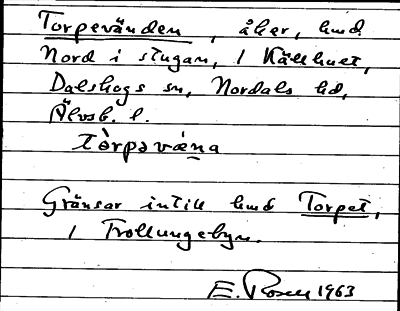 Torpevänden, åker, hmd
Nord i stugan, 1 Källhuet,
Dalskogs sn, Nordals hd,
Älvsb. l.
tòrpəvæ̀na
Gränsar intill hmd Torpet,
1 Trollungebyn.
E. Rosell 1963